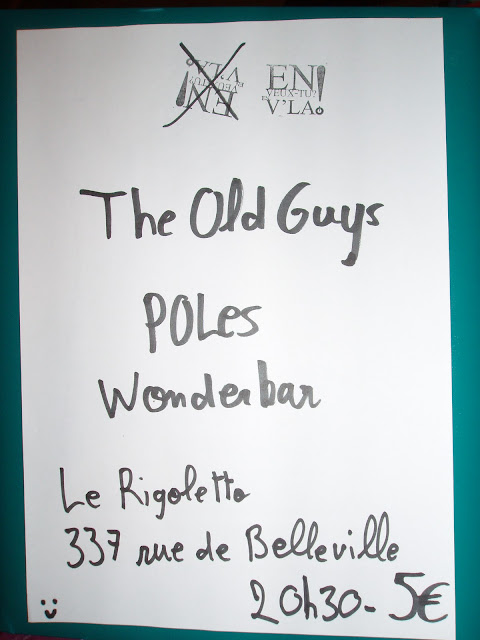 EN!
VEUX-TU?
EN V'LA!
EN!
VEUX-TU?
EN V'LA!
The Old Guys
POLes
Wonderbar
Le Rigoletto
337 rue de Belleville
20h30 - 5€